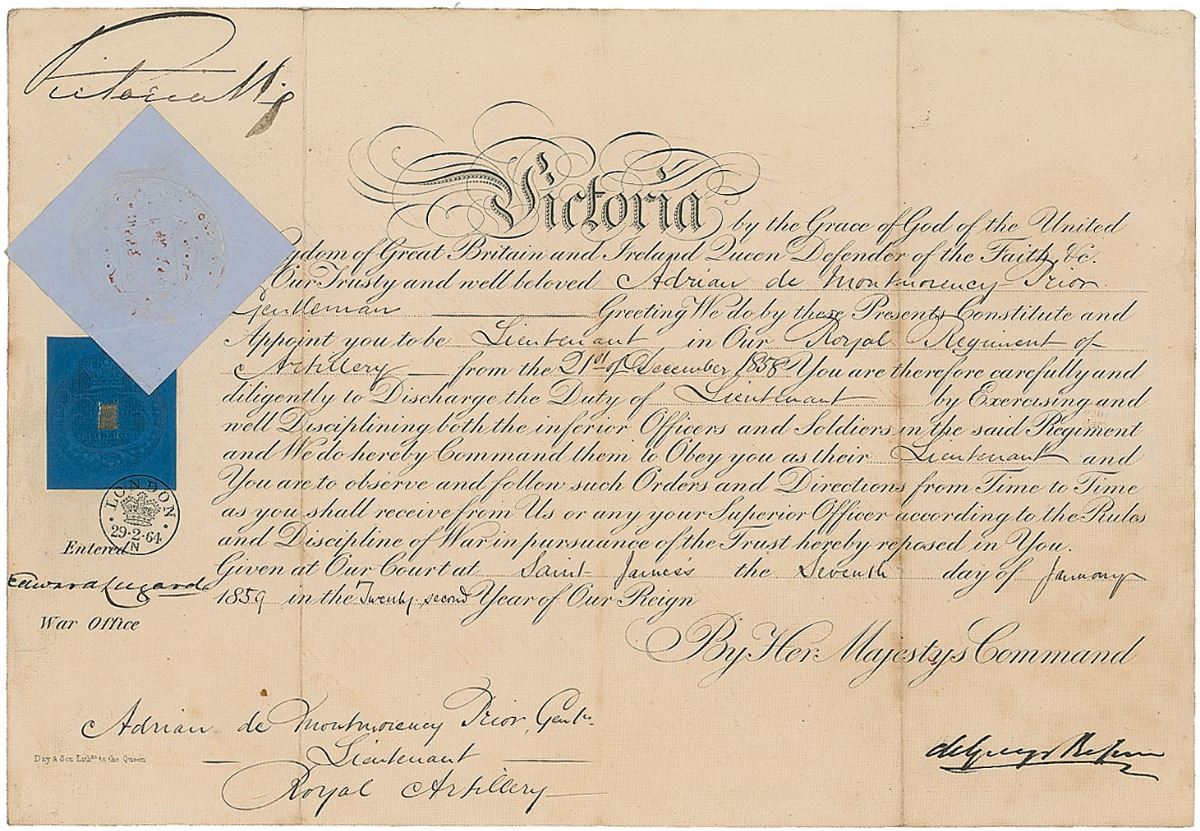 Victoria R
Victoria by the Grace of God of the United
gdom of Great Britain and Ireland Queen Defender of the Faith, &c.
Our Trusty and well beloved Adrian de Montmorency Prior
Gentleman Greeting We do by these Presents Constitute and
Appoint you to be Lieutenant in Our Royal Regiment of
Artillery from the 21st of December 1858 You are therefore carefully and
diligently to Discharge the Duty of Lieutenant by Exercising and
well Disciplining both the inferior Officers and Soldiers in the said Regiment
and We do hereby Command them to Obey you as their Lieutenant and
You are to observe and follow such Orders and Directions from Time to Time
as you shall receive from Us or any your Superior Officer according to the Rules
and Discipline of War in pursuance of the Trust hereby reposed in You.
Given at Our Court at Saint James's the Seventh day of January
1859 in the Twenty second Year of Our Reign
By Her Majestys Command
LONDON
29·2·64
N
Entered
Edward Lugard
War Office
Adrian de Montmorency Prior, Gentn
Lieutenant
Royal Artillery
Day & Son Lithrs to the Queen
de Grey & Ripon